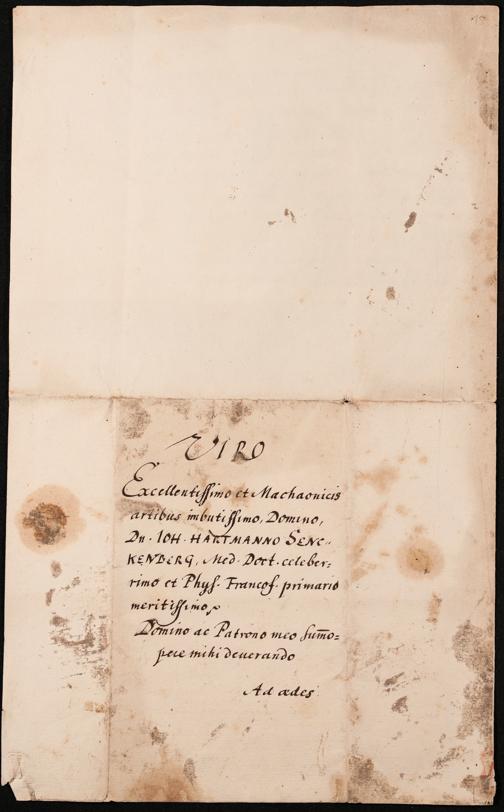 VIRO
Excellentissimo et Machaonicis
artibus imbutissimo, Domino,
Dn. IOH. HARTMANNO SENC-
KENBERG, Med. Doct. celeber-
rimo et Phys. Francof. primario
meritissimo,
Domino ac Patrono meo sum̄o-
pere mihi deuerando
Ad ædes